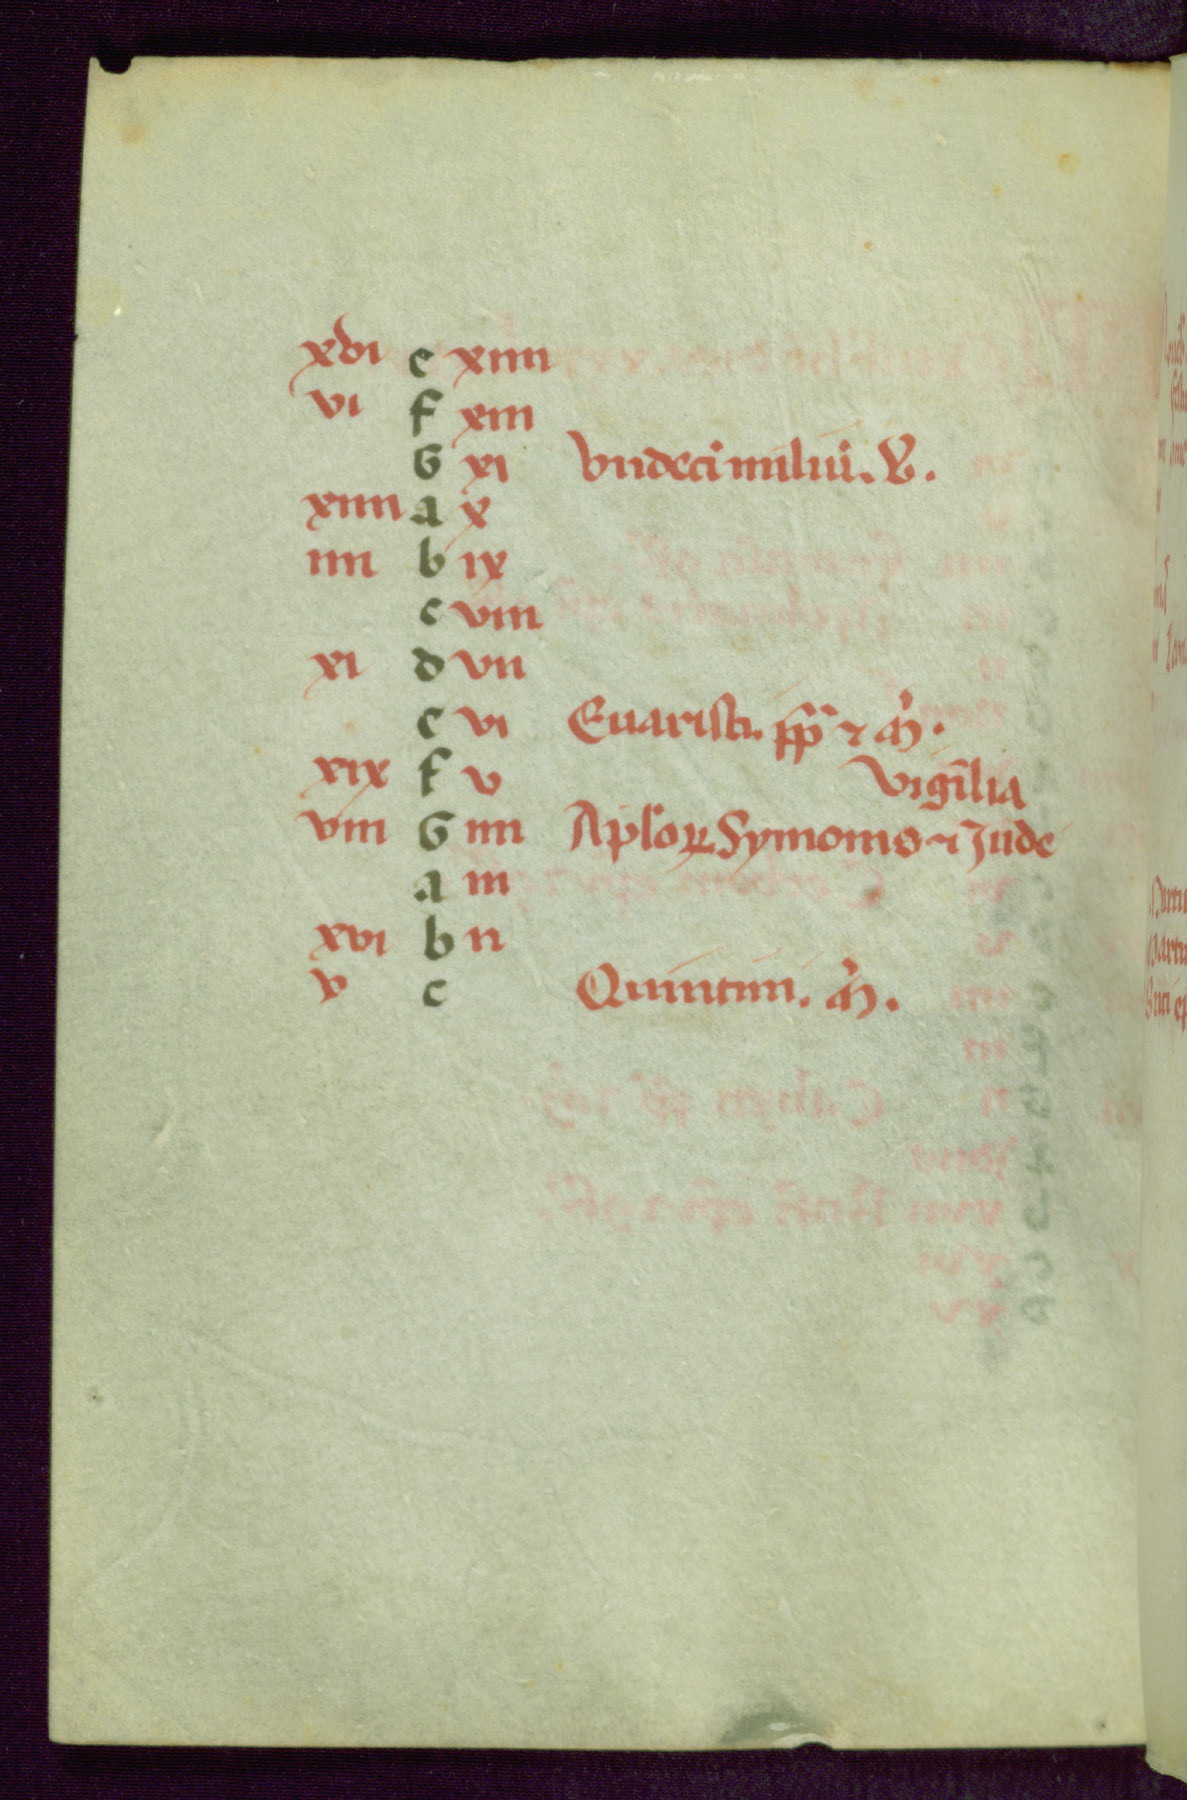 xvi e xiiii
vi f xiii
G xi Vndeci miliuȝ. V.
xiiii a x
iiii b ix
c viii
xi d vii
e vi Euaristi. pp̄ ⁊ m̄.
xix f v Vigīlia
viii G iiii Apl̄oꝝ Symonis ⁊ Jude
a iii
xvi b ii
v c Quintini. m̄.